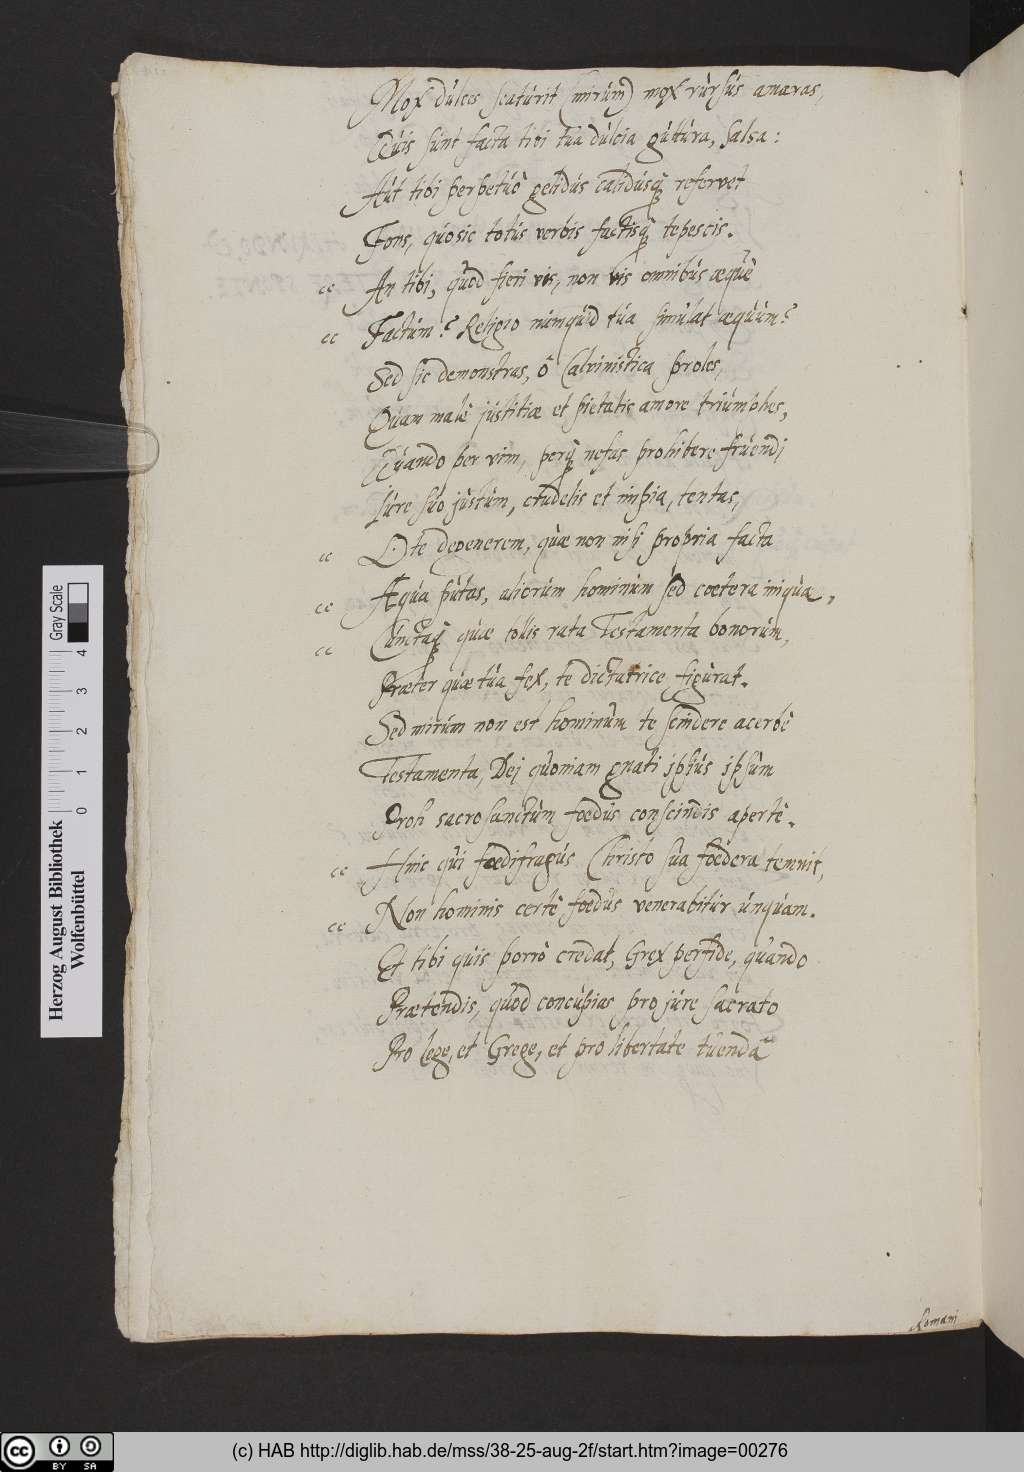 Mox dulces scaturit (mirum) mox rursus amaras,
Quis sunt facta tibi tua dulcia guttura, salsa:
Aut tibi perpetuò gelidus calidusq; refervet
Fons, quo sic totus verbis factisq; tepescis.
cc An tibi, quod fieri vis, non vis omnibus æquè
cc Factum? Religio numquid tua simulat æquum?
Sed sic demonstras, ô Calvinistica proles,
Quam malè justitiæ et pietatis amore triumphes,
Quando per vim, perq; nefas prohibere fruendi
Iure suo justum, crudelis et impia, tentas,
cc O te degenerem, quæ non nisi propria facta
cc Æqua putas, aliorum hominum sed cœtera iniqua,
cc Cunctaq; quæ tollis rata Testamenta bonorum,
Præter quæ tua fex, te dictatrice figurat.
Sed mirum non est hominum te scindere acerbè
Testamenta, Dei quoniam gnati ipsius ipsum
Proh sacrosanctum fœdus conscindis apertè.
cc Hinc qui fœdifragus Christo sua fœdera temnit,
cc Non hominis certè fœdus venerabitur unquam.
Et tibi quis porrò credat, Grex perfide, quando
Prætendis, quod concupias pro jure sacrato
Pro lege, et Grege, et pro libertate tuenda
Romani
Herzog August Bibliothek
Wolfenbüttel
0 1 2 3 4
Gray Scale
cc BY SA
(c) HAB http://diglib.hab.de/mss/38-25-aug-2f/start.htm?image=00276